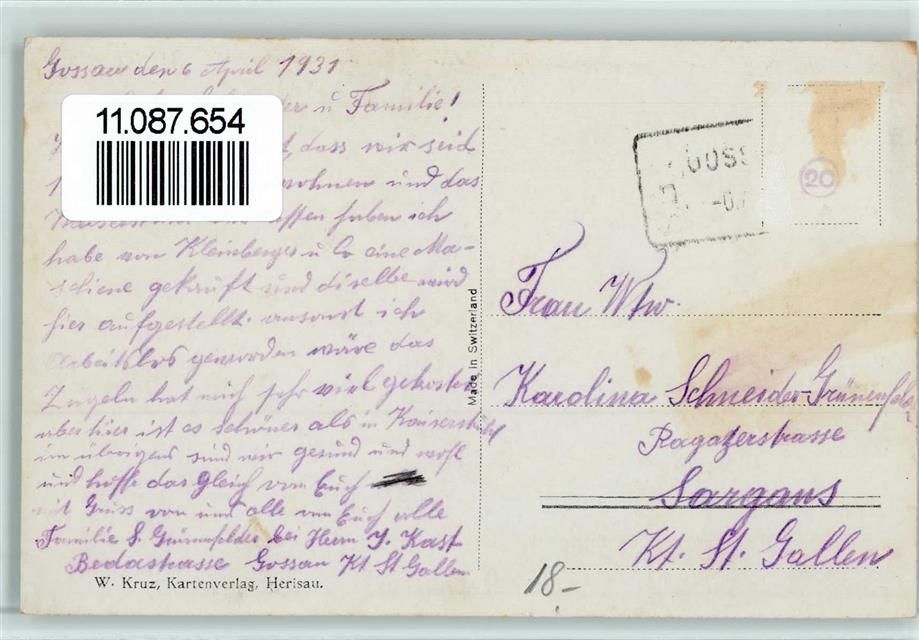 Gossau den 6 April 1931
u Familie!
11.087.654
dass wir seid
wohnen und das
haben ich
habe von Kleinberger u Co eine Ma-
schiene gekauft und diselbe wird
hier aufgestellt. ansonst ich
Arbeitslos geworden wäre das
Züglen hat mich sehr viel gekostet
aber hier ist es Schöner als in Kaiserstuhl
im übrigens sind wir gesund und wohl
und hoffe das Gleich von Euch
mit Gruss von uns alle an Euch alle
Familie S. Grünenfelder bei Herrn J. Kast
Bedastrasse Gossau Kt St Gallen
W. Kruz, Kartenverlag, Herisau.
Made in Switzerland
GOSS
20
Frau Wtw.
Karolina Schneider-Grünenfelder
Ragazerstrasse
Sargans
Kt. St. Gallen
18.-